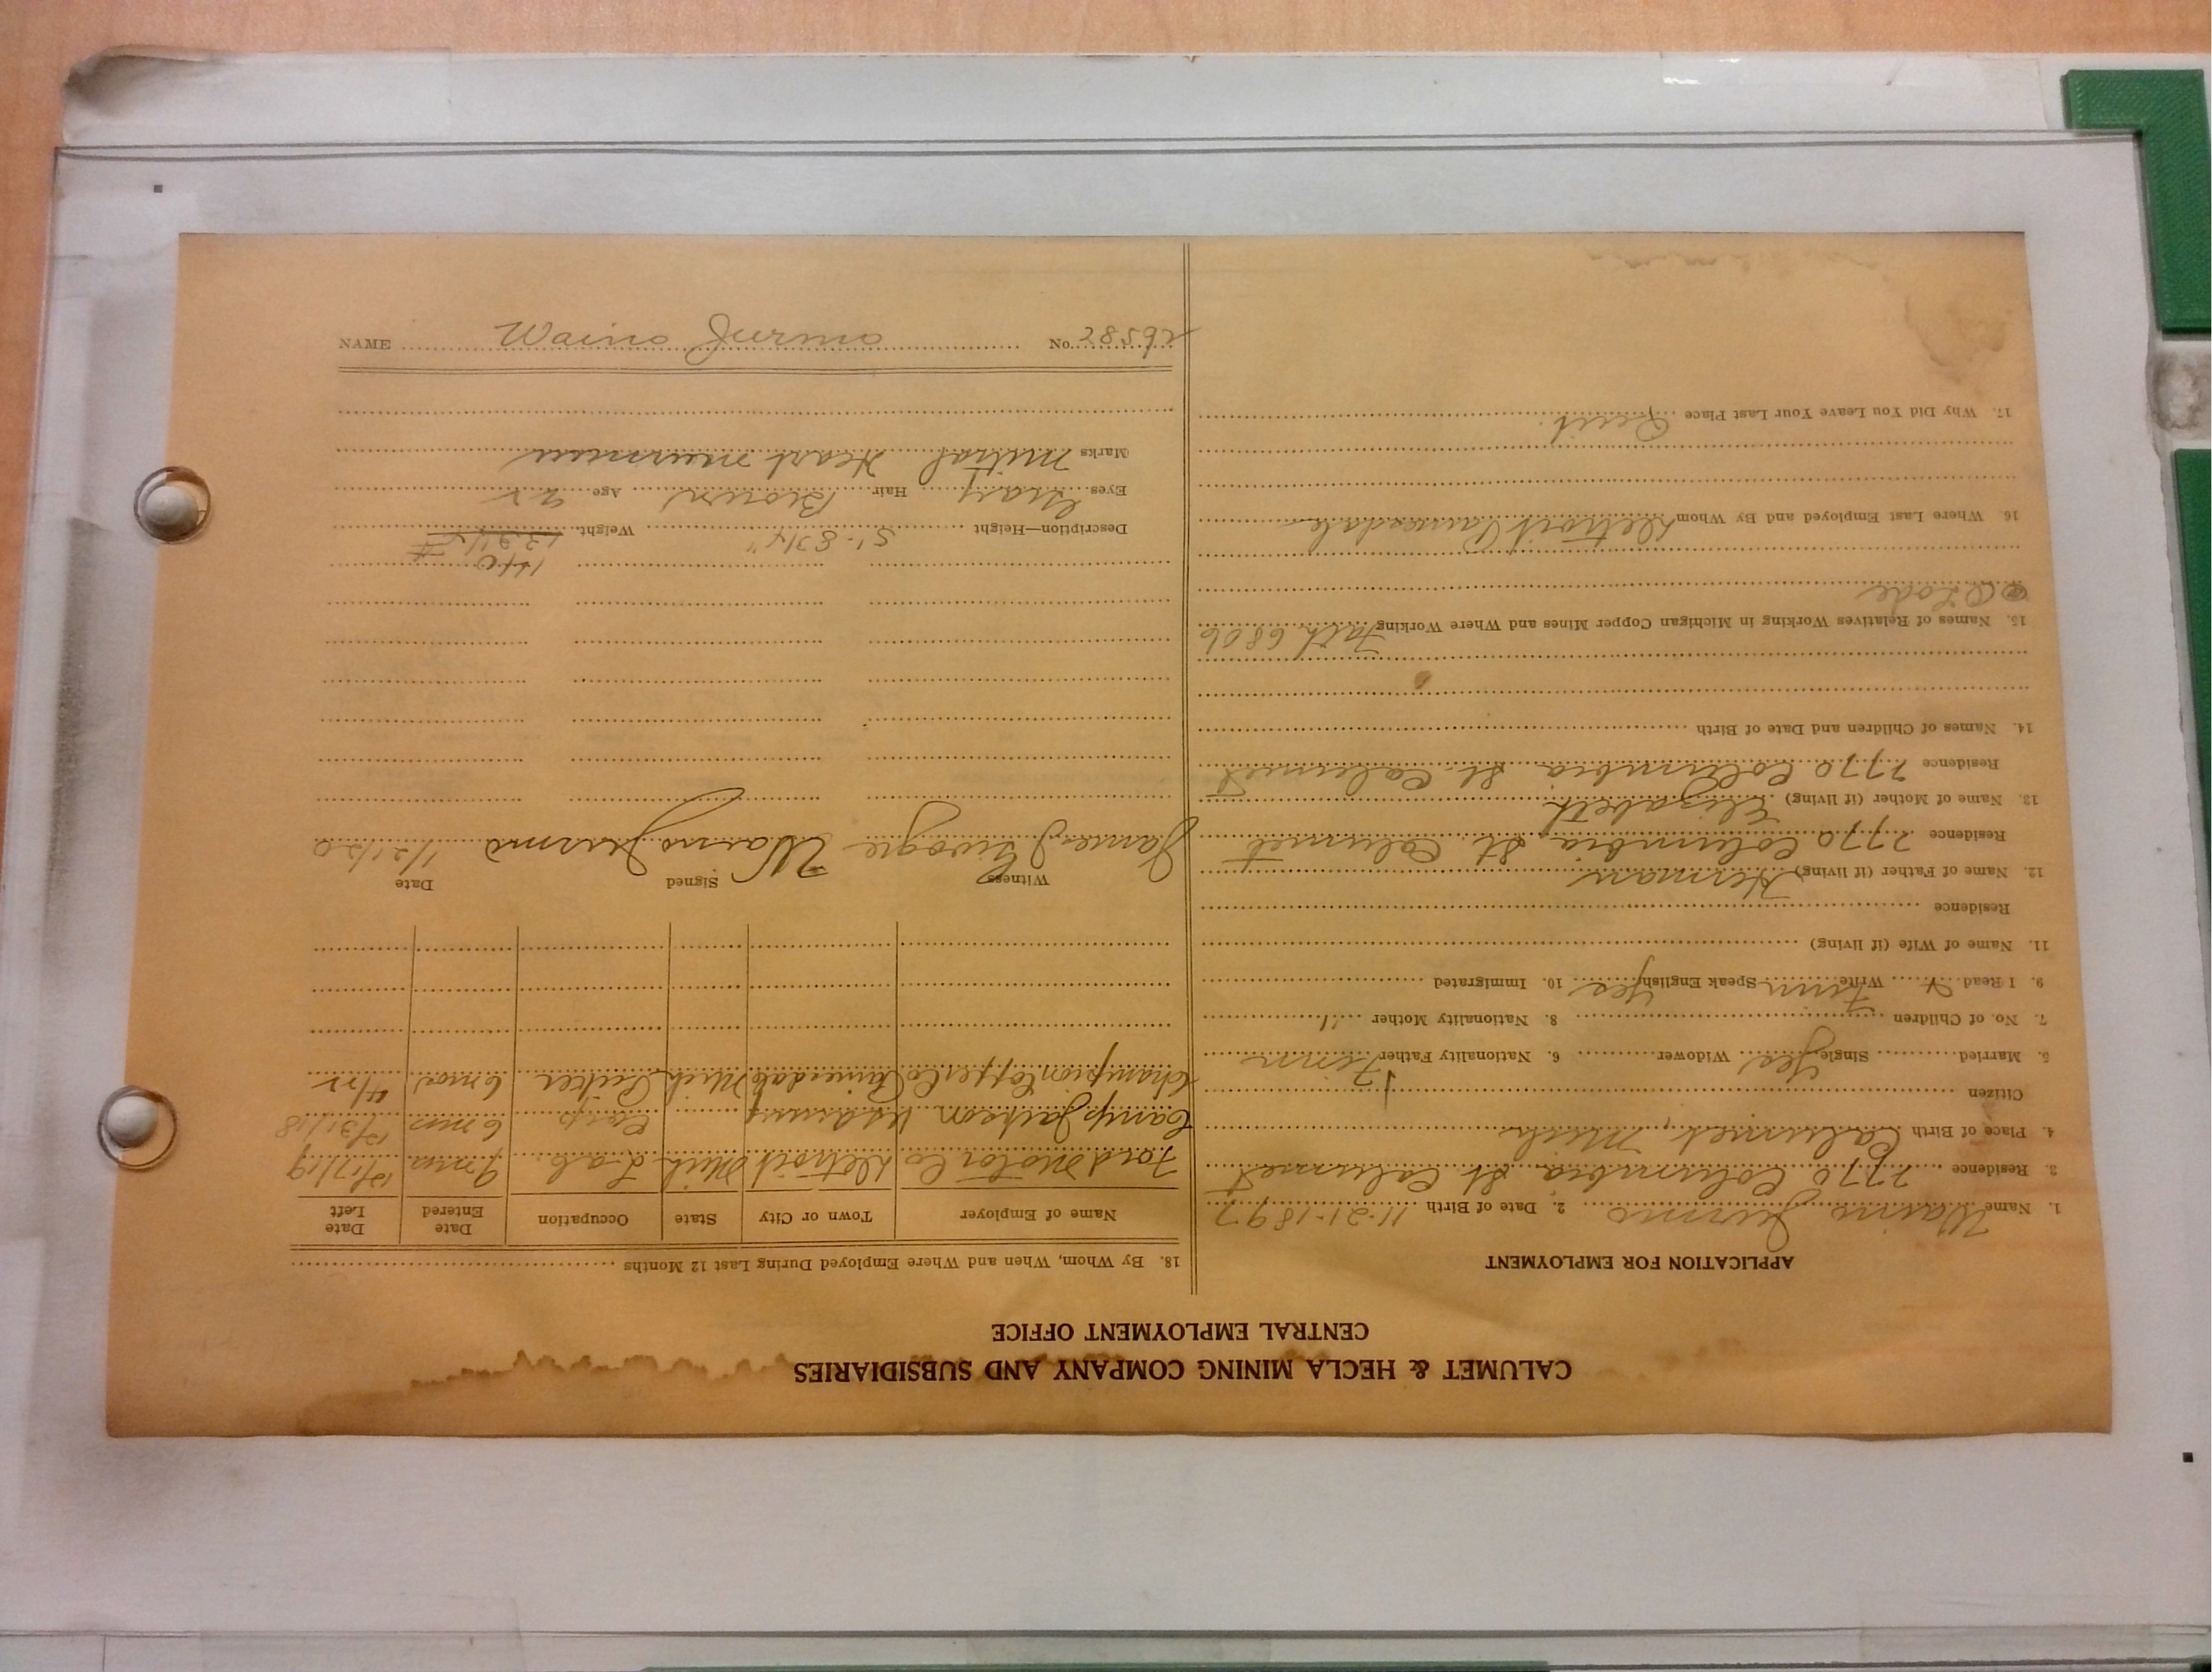 CALUMET & HECLA MINING COMPANY AND SUBSIDIARIES
CENTRAL EMPLOYMENT OFFICE
APPLICATION FOR EMPLOYMENT
1. Name Waino Jurmo 2. Date of Birth 11-21-1897
3. Residence 2770 Columbia St. Calumet
4. Place of Birth Calumet Mich.
Citizen
5. Married Single Yes Widower 6. Nationality Father Finn
7. No. of Children 8. Nationality Mother "
9. I Read Write Finn Speak English Yes 10. Immigrated
11. Name of Wife (if living)
Residence
12. Name of Father (if living) Herman
Residence 2770 Columbia St. Calumet
13. Name of Mother (if living) Elizabeth
Residence 2770 Columbia St. Calumet
14. Names of Children and Date of Birth
15. Names of Relatives Working in Michigan Copper Mines and Where Working Fath 6806
Lode
16. Where Last Employed and By Whom Detroit Painesdale
17. Why Did You Leave Your Last Place Quit.
18. By Whom, When and Where Employed During Last 12 Months
Name of Employer Town or City State Occupation Date Entered Date Left
Ford Motor Co Detroit Mich Lab. 9 mos 12/17/19
Camp Jackson US Army 6 mos 12/31/18
Champion Copper Co Painesdale Mich 6 mos 4/22
Witness Signed Date
James Waino Jurmo 1/21/20
140
Description—Height 5'-8 3/4" Weight
Eyes Gray Hair Brown Age 22
Marks Mitral Heart murmur
NAME Waino Jurmo No. 28592